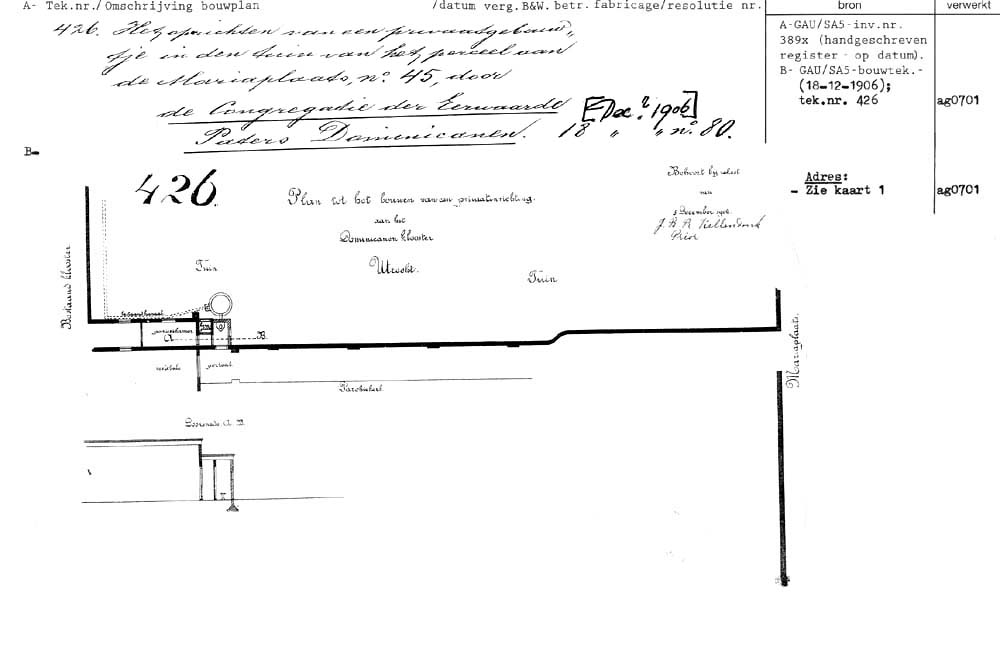 A- Tek.nr./Omschrijving bouwplan /datum verg.B&W. betr. fabricage/resolutie nr. bron verwerkt
426. Het oprichten van een privaatgebouw„
tje in den tuin van het perceel aan
de Mariaplaats, no. 45, door
de Congregatie der Eerwaarde
Paters Dominicanen.
[Dec? 1906]
18 „ „ no. 80.
A-GAU/SA5-inv.nr.
389x (handgeschreven
register - op datum).
B- GAU/SA5-bouwtek.-
(18-12-1906);
tek.nr. 426 ag0701
Adres:
- Zie kaart 1 ag0701
B-
426.
Plan tot het bouwen van een privaatinrichting.
aan het
Dominicanen klooster
Utrecht.
Behoort bij
December 1906
Prior
Bestaand klooster
Tuin
Tuin
A B.
portaal
Parochiekerk
Mariaplaats.
Doorsnede A B.